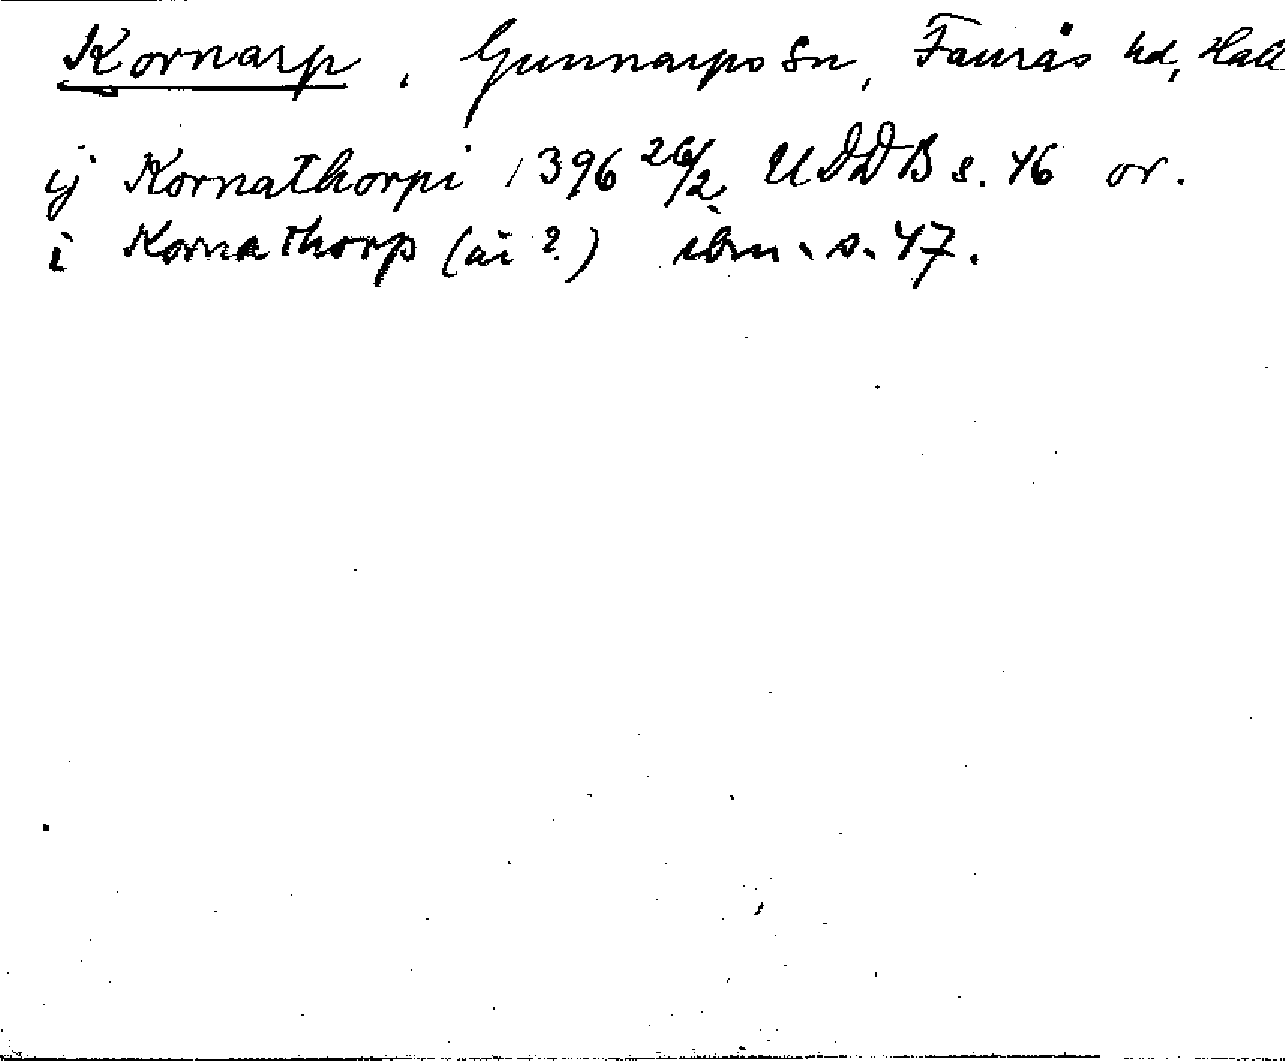 Kornarp, Gunnarps Sn, Faurås hd, Hall
ij Kornathorpi 1396 26/2 UDDB s. 46 or.
i Kornathorp (āi ?) ibm. s. 47.